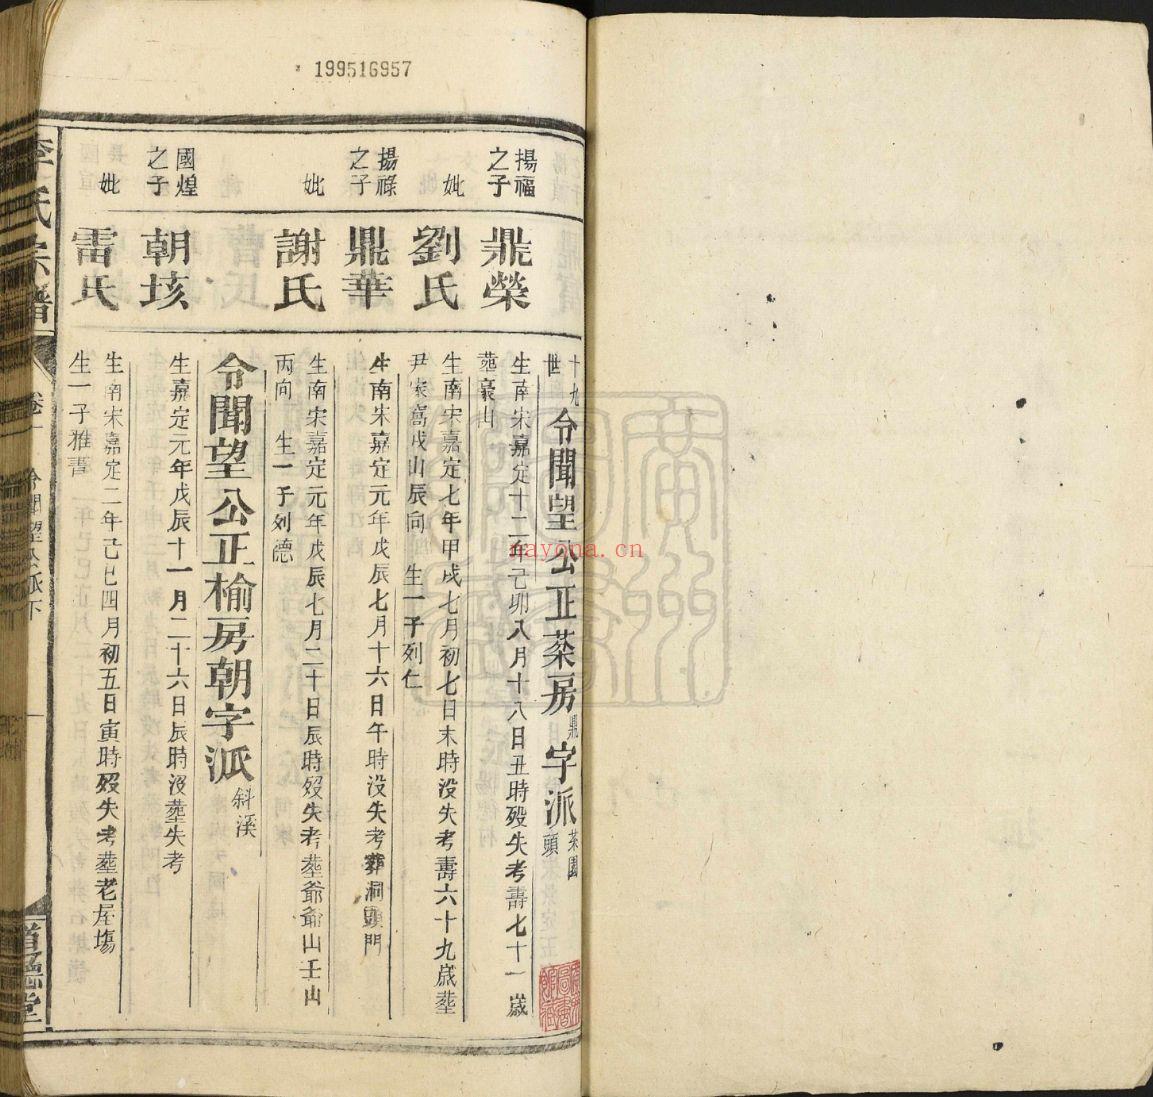 199516957
十九世 令聞望公正菜房鼎字派 茶園頭
揚福之子 鼎榮 生南宋嘉定十二年己卯八月十八日丑時殁失考壽七十一歲
塟豪山
妣 劉氏 生南宋嘉定七年甲戌七月初七日未時没失考壽六十九歲塟
尹家窩戌山辰向 生一子列仁
揚祿之子 鼎華 生南宋嘉定元年戊辰七月十六日午時没失考葬洞頭門
妣 謝氏 生南宋嘉定元年戊辰七月二十日辰時殁失考塟爺爺山壬山
丙向 生一子列德
令聞望公正榆房朝字派 斜溪
國煌之子 朝垓 生嘉定元年戊辰十一月二十六日辰時没塟失考
妣 雷氏 生南宋嘉定二年己巳四月初五日寅時殁失考塟老屋塲
生一子雅書
李氏宗譜
卷一
令聞望公派下
道德堂
nayona.cn